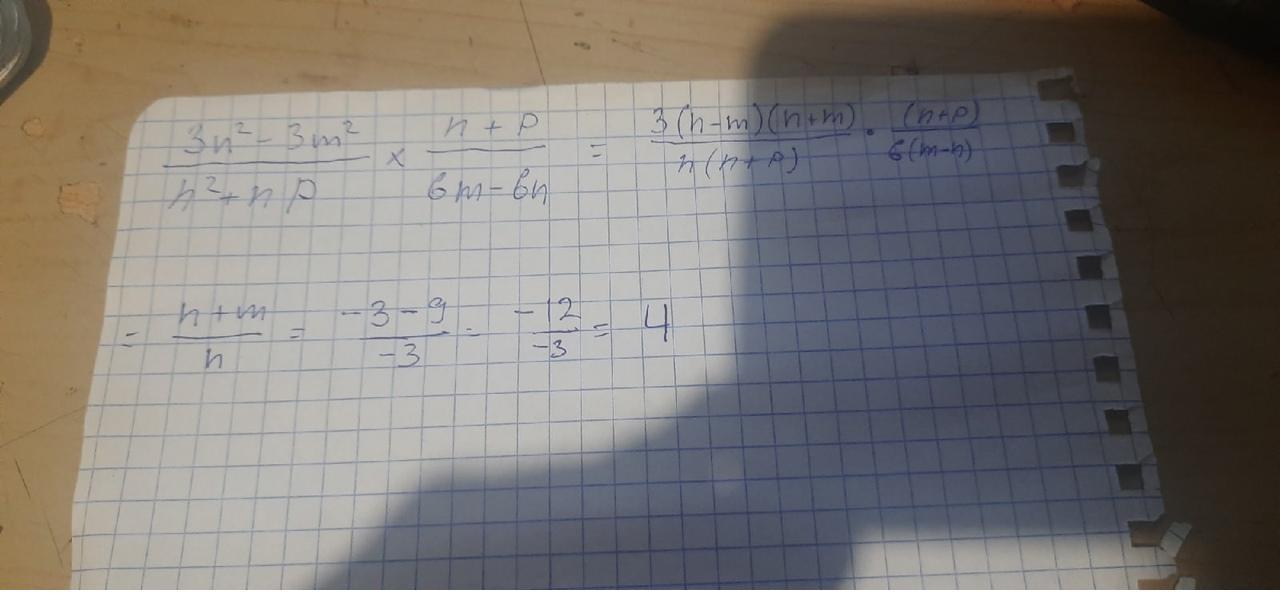 (3n² - 3m²)/(n² + np) × (n + p)/(6m - 6n) = 3(n-m)(n+m)/n(n+p) · (n+p)/6(m-n)
= (n+m)/n = (-3-9)/-3 = -12/-3 = 4